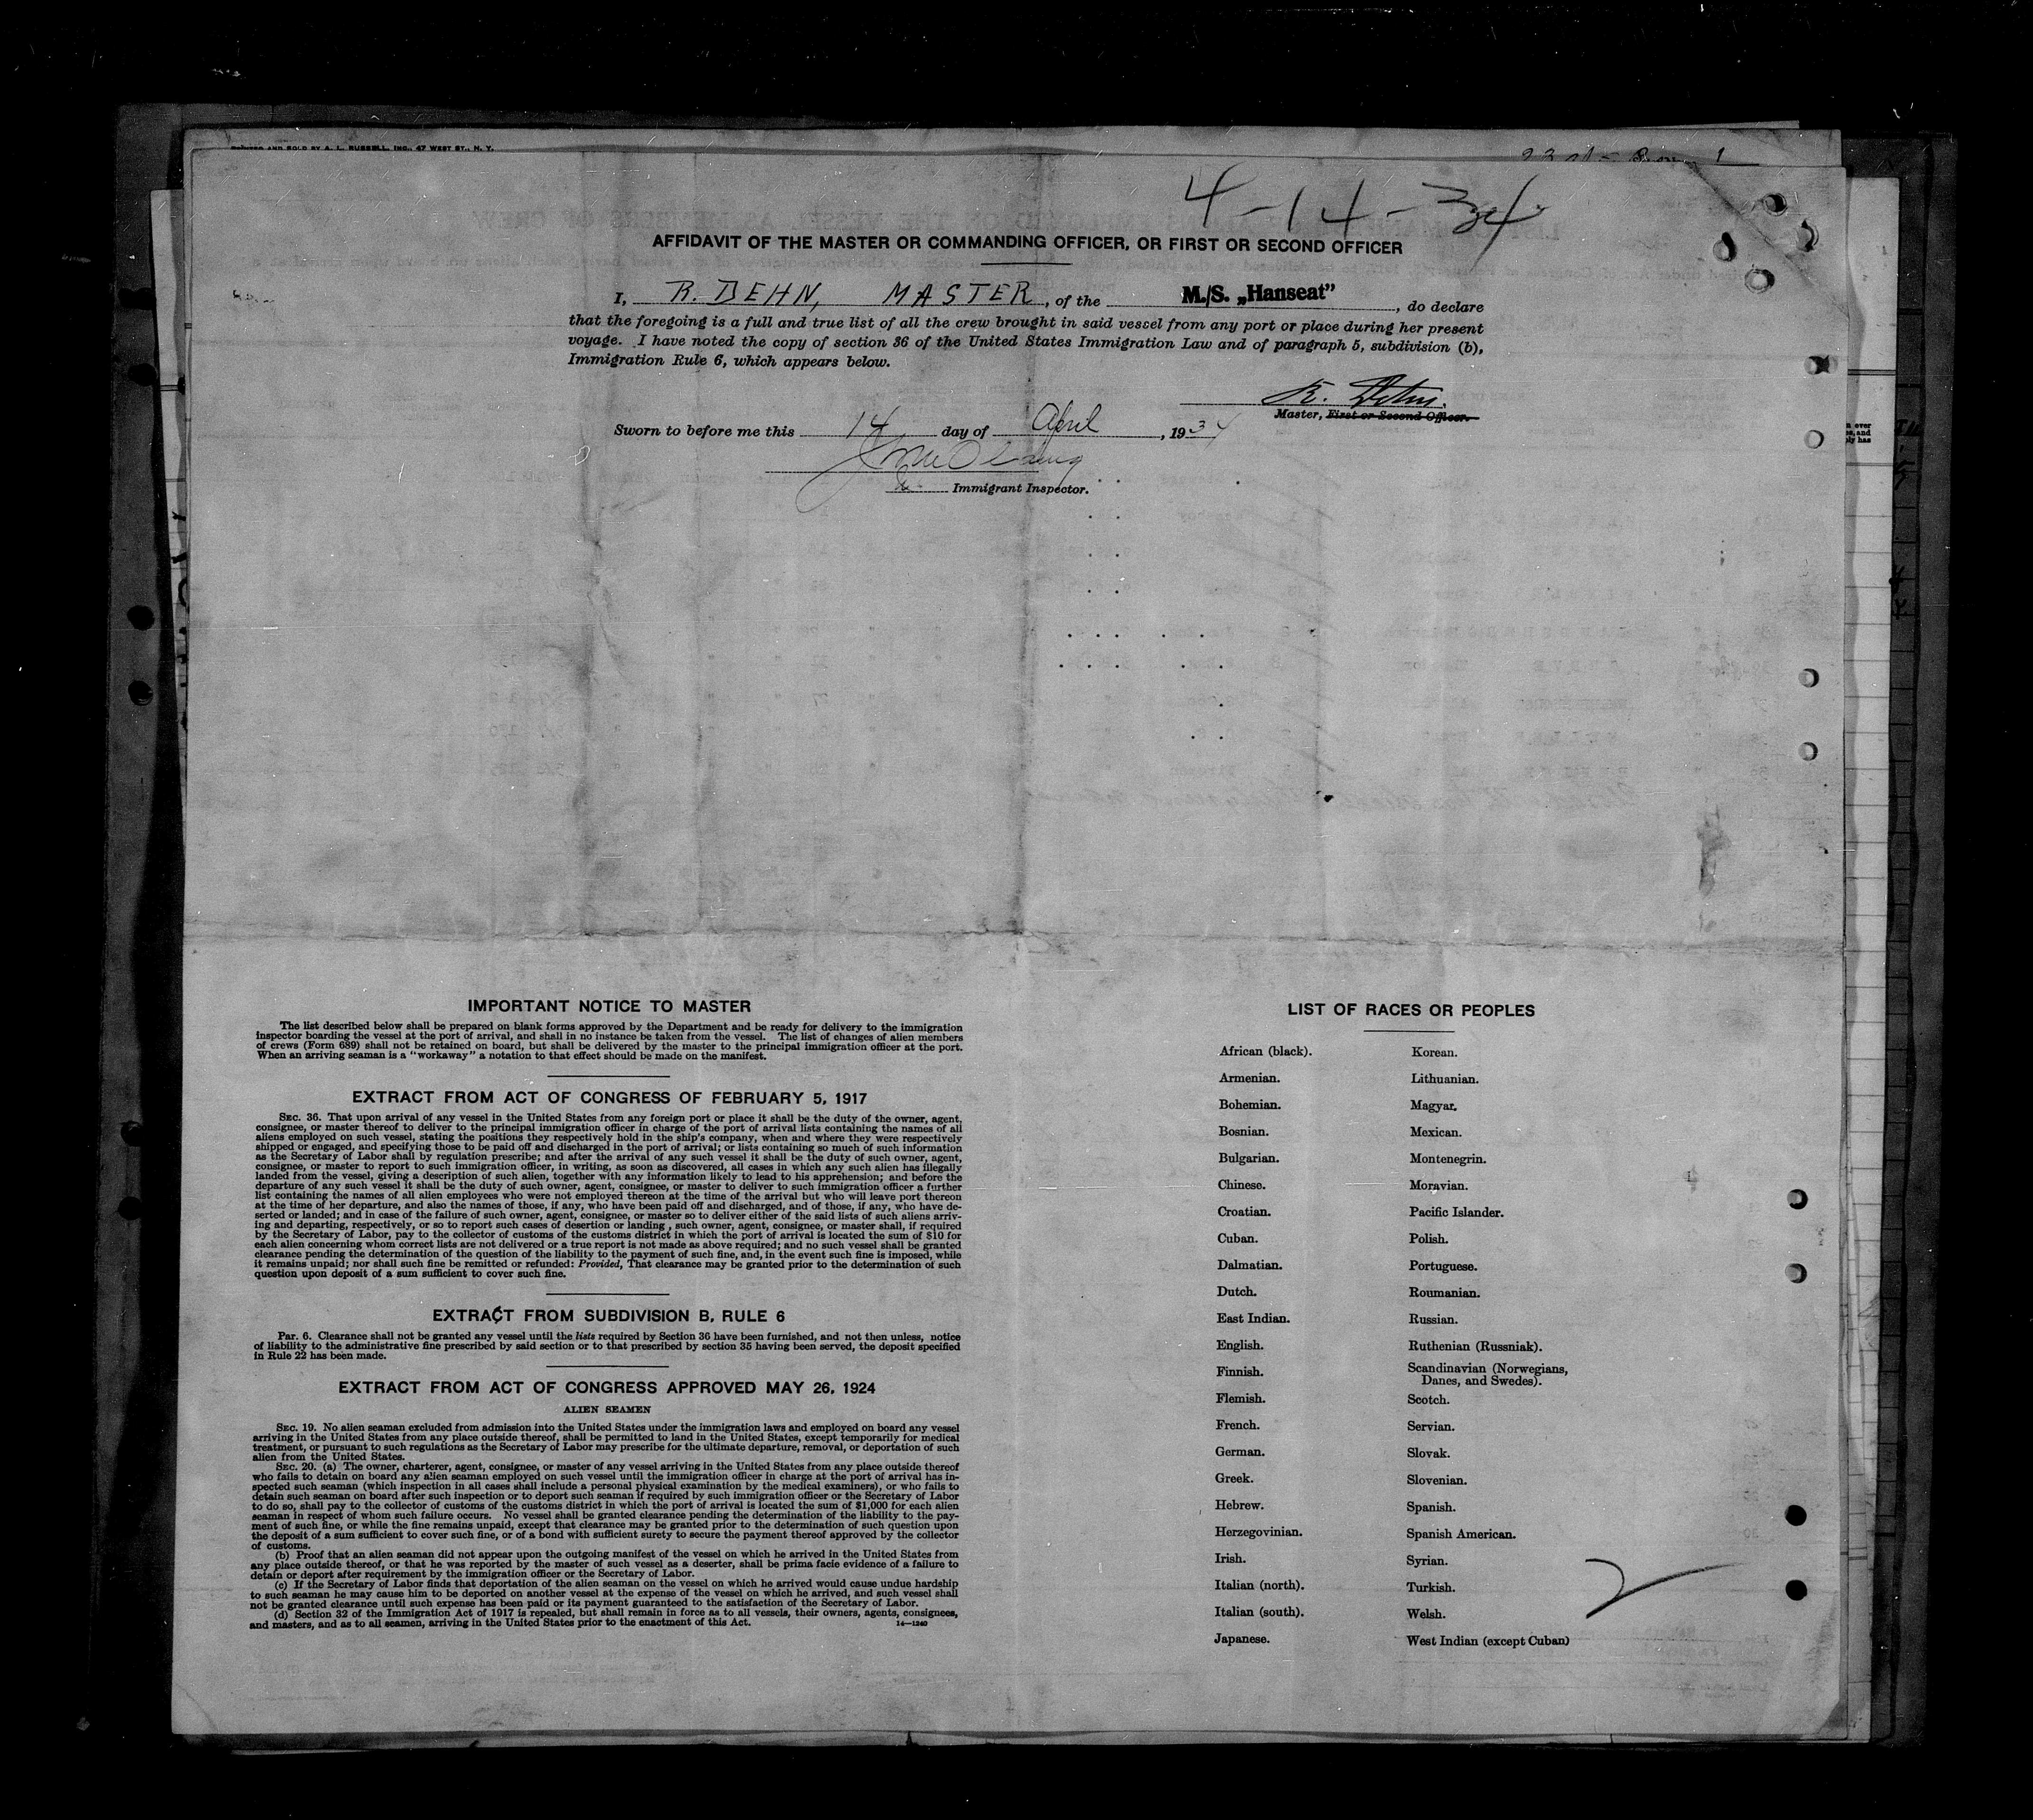 PRINTED AND SOLD BY A. L. RUSSELL, INC., 47 WEST ST., N. Y.
4-14-34
AFFIDAVIT OF THE MASTER OR COMMANDING OFFICER, OR FIRST OR SECOND OFFICER
I, R. DEHN, MASTER, of the M./S. „Hanseat", do declare
that the foregoing is a full and true list of all the crew brought in said vessel from any port or place during her present
voyage. I have noted the copy of section 36 of the United States Immigration Law and of paragraph 5, subdivision (b),
Immigration Rule 6, which appears below.
R. Dehn.
Master, First or Second Officer.
Sworn to before me this 14 day of April, 1934
Immigrant Inspector.
IMPORTANT NOTICE TO MASTER
The list described below shall be prepared on blank forms approved by the Department and be ready for delivery to the immigration
inspector boarding the vessel at the port of arrival, and shall in no instance be taken from the vessel. The list of changes of alien members
of crews (Form 689) shall not be retained on board, but shall be delivered by the master to the principal immigration officer at the port.
When an arriving seaman is a "workaway" a notation to that effect should be made on the manifest.
EXTRACT FROM ACT OF CONGRESS OF FEBRUARY 5, 1917
SEC. 36. That upon arrival of any vessel in the United States from any foreign port or place it shall be the duty of the owner, agent,
consignee, or master thereof to deliver to the principal immigration officer in charge of the port of arrival lists containing the names of all
aliens employed on such vessel, stating the positions they respectively hold in the ship's company, when and where they were respectively
shipped or engaged, and specifying those to be paid off and discharged in the port of arrival; or lists containing so much of such information
as the Secretary of Labor shall by regulation prescribe; and after the arrival of any such vessel it shall be the duty of such owner, agent,
consignee, or master to report to such immigration officer, in writing, as soon as discovered, all cases in which any such alien has illegally
landed from the vessel, giving a description of such alien, together with any information likely to lead to his apprehension; and before the
departure of any such vessel it shall be the duty of such owner, agent, consignee, or master to deliver to such immigration officer a further
list containing the names of all alien employees who were not employed thereon at the time of the arrival but who will leave port thereon
at the time of her departure, and also the names of those, if any, who have been paid off and discharged, and of those, if any, who have de-
serted or landed; and in case of the failure of such owner, agent, consignee, or master so to deliver either of the said lists of such aliens arriv-
ing and departing, respectively, or so to report such cases of desertion or landing , such owner, agent, consignee, or master shall, if required
by the Secretary of Labor, pay to the collector of customs of the customs district in which the port of arrival is located the sum of $10 for
each alien concerning whom correct lists are not delivered or a true report is not made as above required; and no such vessel shall be granted
clearance pending the determination of the question of the liability to the payment of such fine, and, in the event such fine is imposed, while
it remains unpaid; nor shall such fine be remitted or refunded: Provided, That clearance may be granted prior to the determination of such
question upon deposit of a sum sufficient to cover such fine.
EXTRACT FROM SUBDIVISION B, RULE 6
Par. 6. Clearance shall not be granted any vessel until the lists required by Section 36 have been furnished, and not then unless, notice
of liability to the administrative fine prescribed by said section or to that prescribed by section 35 having been served, the deposit specified
in Rule 22 has been made.
EXTRACT FROM ACT OF CONGRESS APPROVED MAY 26, 1924
ALIEN SEAMEN
SEC. 19. No alien seaman excluded from admission into the United States under the immigration laws and employed on board any vessel
arriving in the United States from any place outside thereof, shall be permitted to land in the United States, except temporarily for medical
treatment, or pursuant to such regulations as the Secretary of Labor may prescribe for the ultimate departure, removal, or deportation of such
alien from the United States.
SEC. 20. (a) The owner, charterer, agent, consignee, or master of any vessel arriving in the United States from any place outside thereof
who fails to detain on board any alien seaman employed on such vessel until the immigration officer in charge at the port of arrival has in-
spected such seaman (which inspection in all cases shall include a personal physical examination by the medical examiners), or who fails to
detain such seaman on board after such inspection or to deport such seaman if required by such immigration officer or the Secretary of Labor
to do so, shall pay to the collector of customs of the customs district in which the port of arrival is located the sum of $1,000 for each alien
seaman in respect of whom such failure occurs. No vessel shall be granted clearance pending the determination of the liability to the pay-
ment of such fine, or while the fine remains unpaid, except that clearance may be granted prior to the determination of such question upon
the deposit of a sum sufficient to cover such fine, or of a bond with sufficient surety to secure the payment thereof approved by the collector
of customs.
(b) Proof that an alien seaman did not appear upon the outgoing manifest of the vessel on which he arrived in the United States from
any place outside thereof, or that he was reported by the master of such vessel as a deserter, shall be prima facie evidence of a failure to
detain or deport after requirement by the immigration officer or the Secretary of Labor.
(c) If the Secretary of Labor finds that deportation of the alien seaman on the vessel on which he arrived would cause undue hardship
to such seaman he may cause him to be deported on another vessel at the expense of the vessel on which he arrived, and such vessel shall
not be granted clearance until such expense has been paid or its payment guaranteed to the satisfaction of the Secretary of Labor.
(d) Section 32 of the Immigration Act of 1917 is repealed, but shall remain in force as to all vessels, their owners, agents, consignees,
and masters, and as to all seamen, arriving in the United States prior to the enactment of this Act. 14—1240
LIST OF RACES OR PEOPLES
African (black).
Armenian.
Bohemian.
Bosnian.
Bulgarian.
Chinese.
Croatian.
Cuban.
Dalmatian.
Dutch.
East Indian.
English.
Finnish.
Flemish.
French.
German.
Greek.
Hebrew.
Herzegovinian.
Irish.
Italian (north).
Italian (south).
Japanese.
Korean.
Lithuanian.
Magyar.
Mexican.
Montenegrin.
Moravian.
Pacific Islander.
Polish.
Portuguese.
Roumanian.
Russian.
Ruthenian (Russniak).
Scandinavian (Norwegians,
Danes, and Swedes).
Scotch.
Servian.
Slovak.
Slovenian.
Spanish.
Spanish American.
Syrian.
Turkish.
Welsh.
West Indian (except Cuban)
2